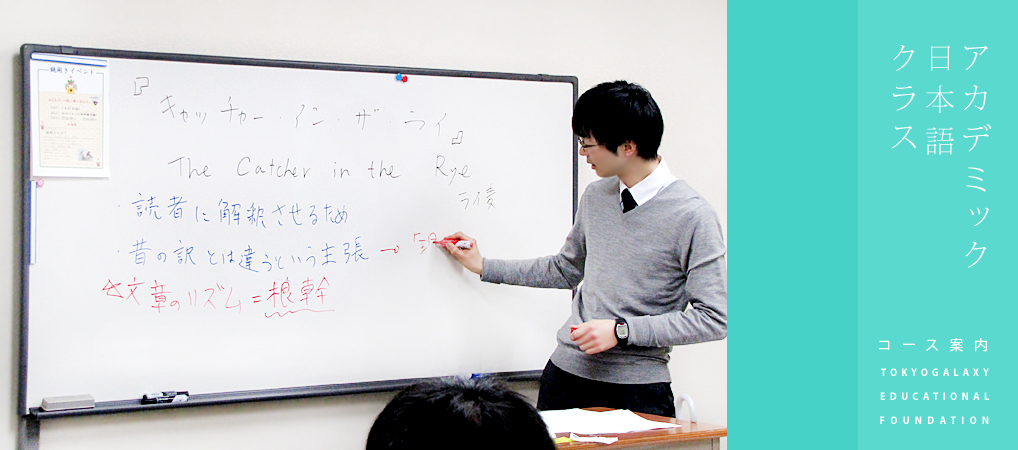 戦闘きイベント
『キャッチャー・イン・ザ・ライ』
The Catcher in the Rye
ライ麦
・読者に解釈させるため
・昔の訳とは違うという主張→
☆文章のリズム=根幹
アカデミック
日本語
クラス
コース案内
TOKYOGALAXY
EDUCATIONAL
FOUNDATION